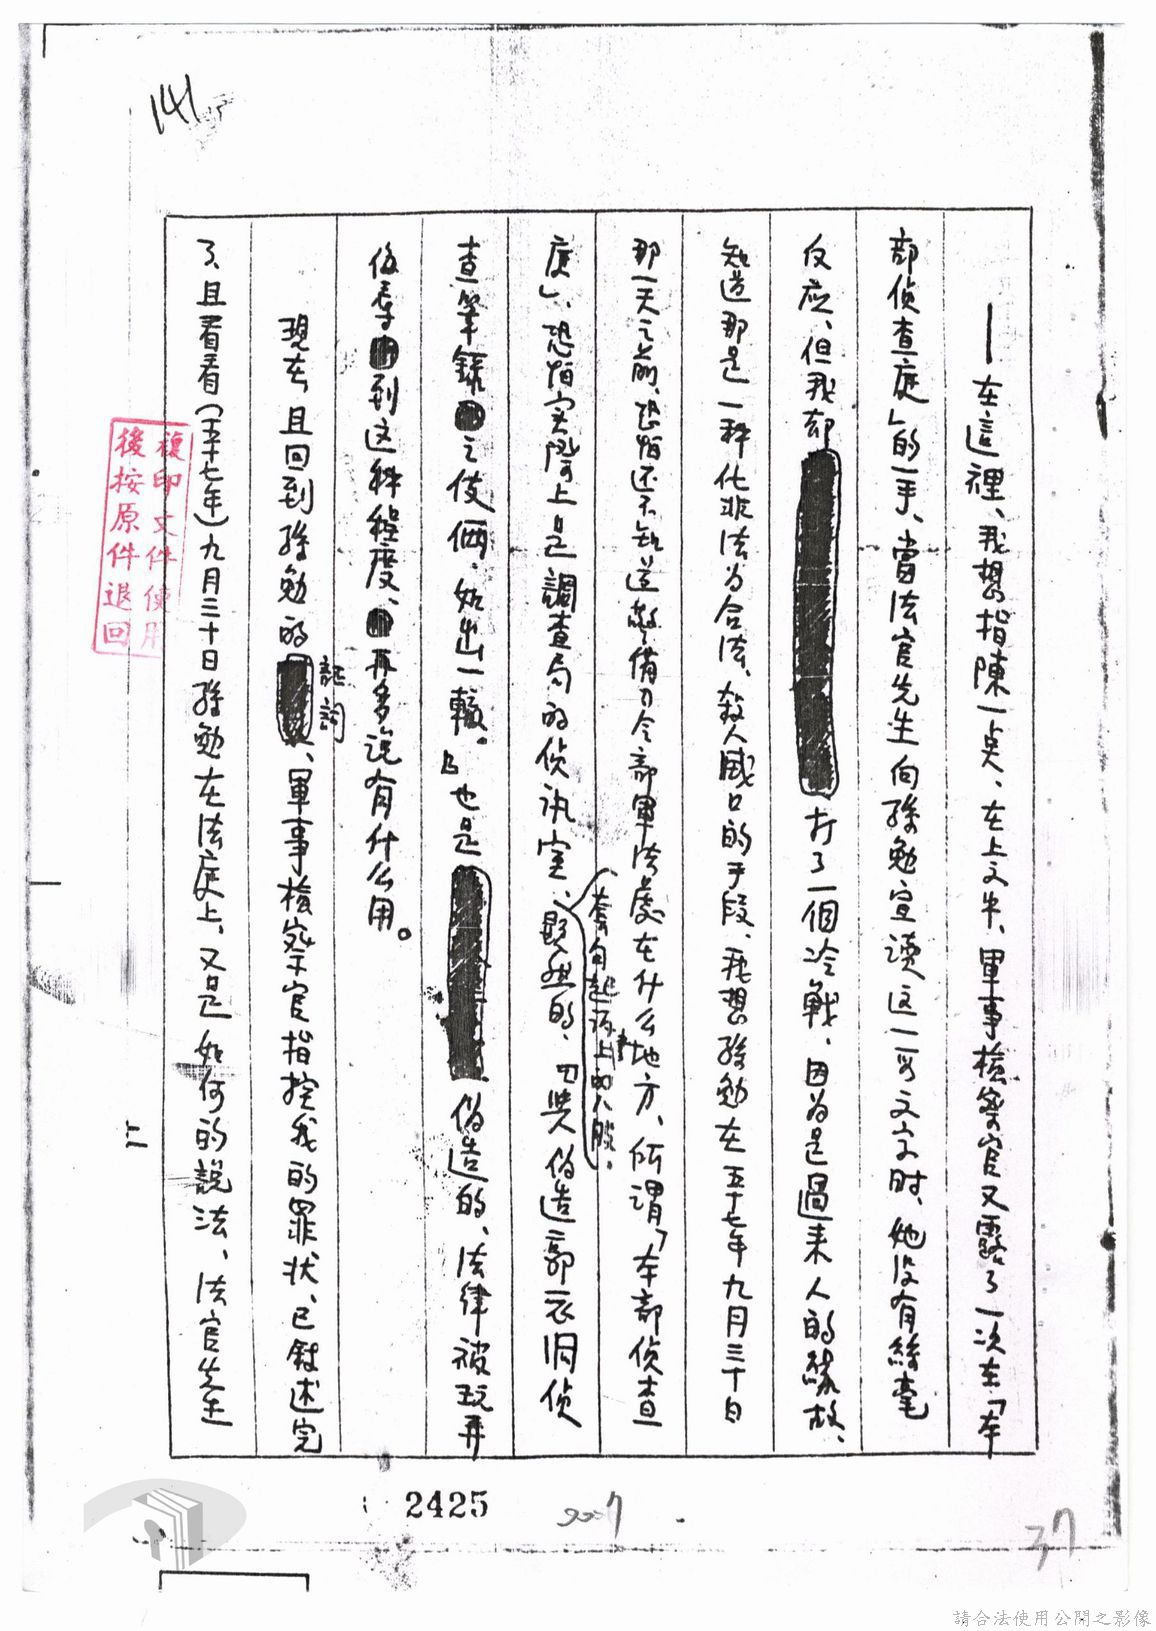 141
——在這裡、我想指陳一点、在上文中、軍事檢察官又露了一次在「本
部侦查庭」的一手、當法官先生向孫勉宣读这一句文字时、她没有絲毫
反应、但我却打了一個冷戰、因为是過来人的緣故、
知道那是一种化非法为合法、殺人滅口的手段、我想孫勉在五十七年九月三十日
那一天之前、恐怕还不知道警備司令部軍法處在什么地方、所謂「本部侦查
庭」、恐怕实際上是調查局的侦訊室、顯然的、四與伪造郭衣洞侦
套句起訴書上的八股、
查筆錄之伎倆、如出一轍。也是伪造的、法律被玩弄
侮辱到这种程度、再多说有什么用。
現在、且回到孫勉的証詞、軍事檢察官指控我的罪状、已敍述完
了、且看看（五十七年）九月三十日孫勉在法庭上、又是如何的說法、法官先生
複印文件使用
後按原件退回
上
2425
37
請合法使用公開之影像